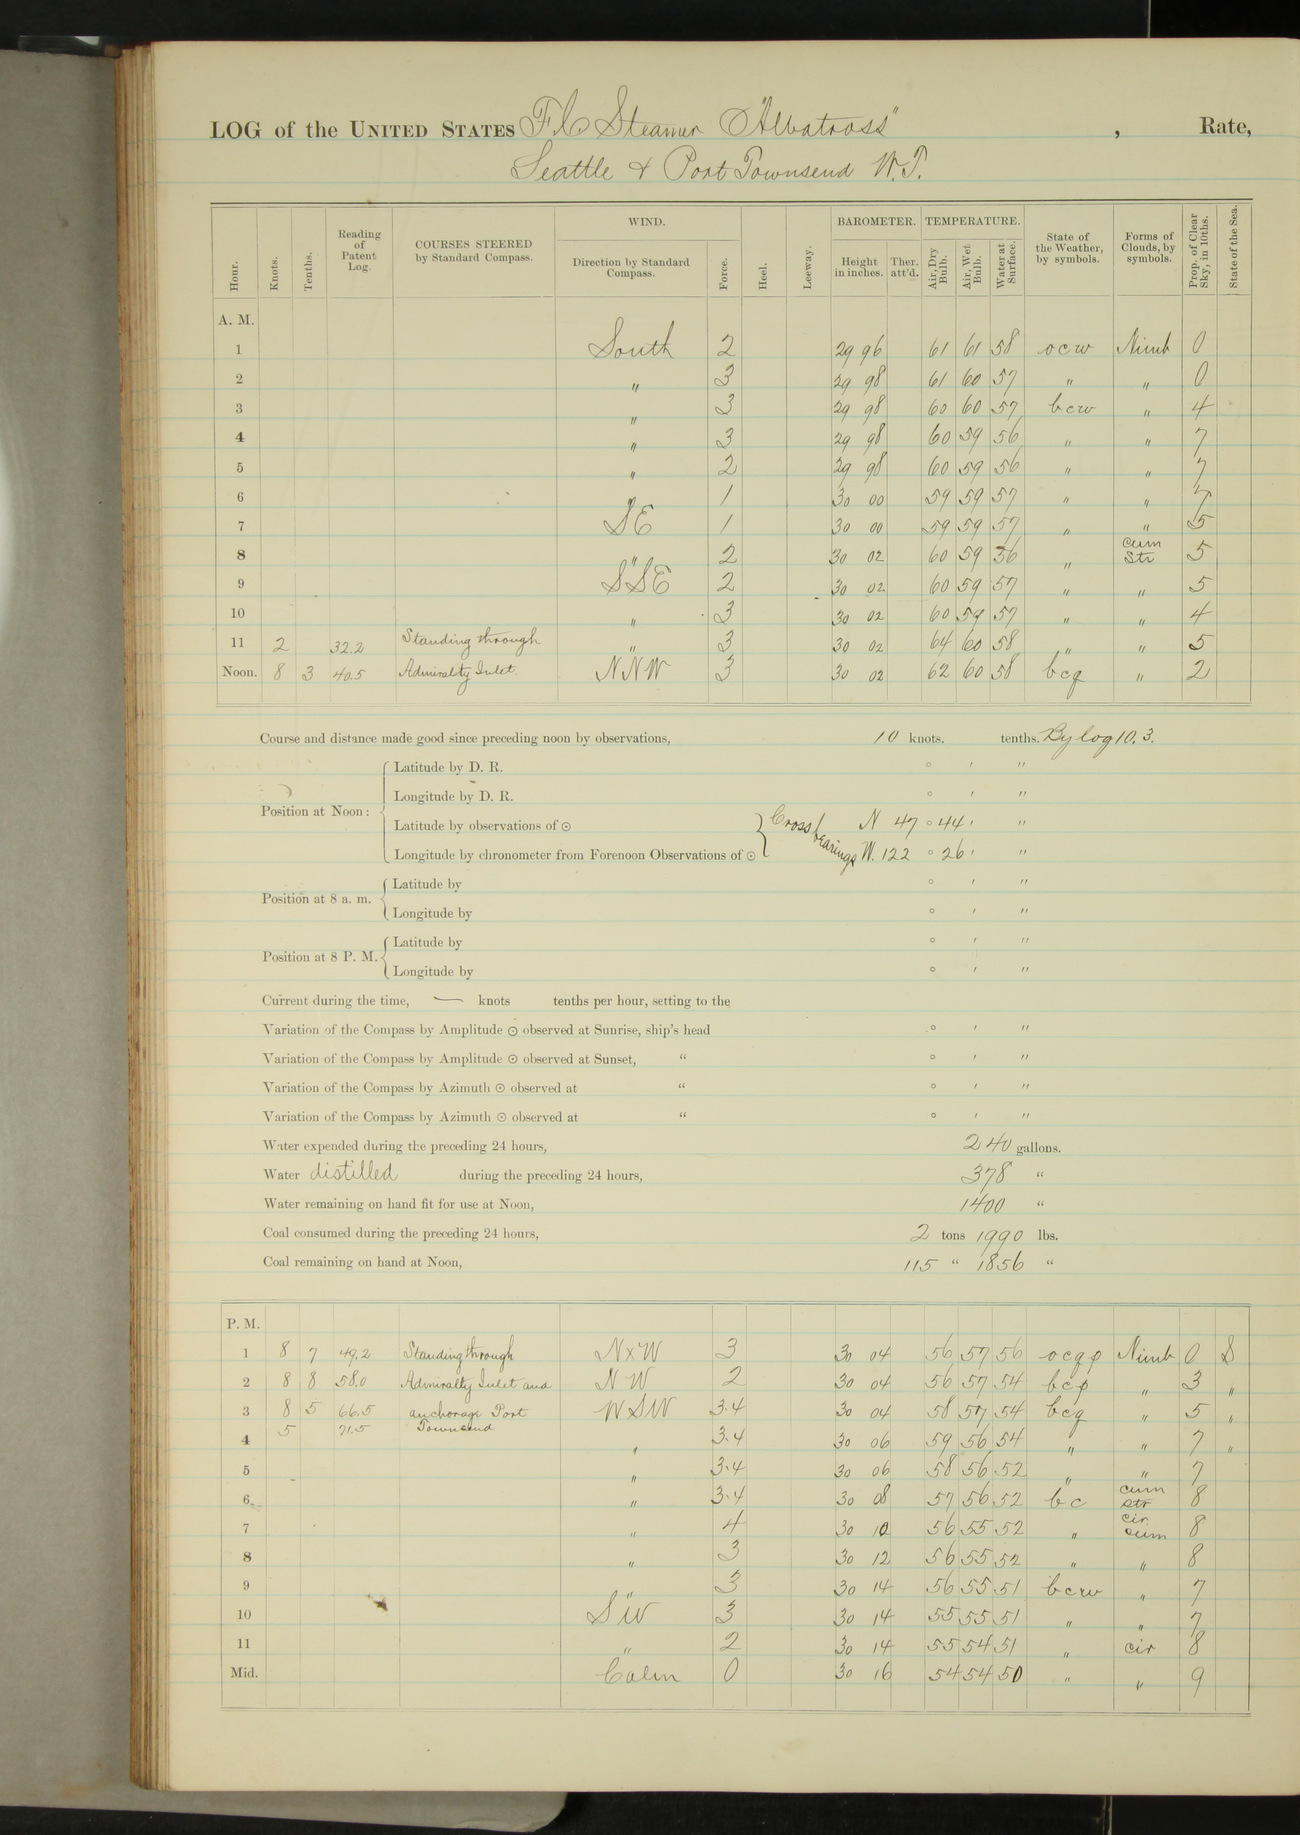 LOG of the UNITED STATES F.C. Steamer "Albatross", Rate,
Seattle & Port Townsend W.T.
Hour. Knots. Tenths. Reading of Patent Log. COURSES STEERED by Standard Compass. WIND. Direction by Standard Compass. Force. Heel. Leeway. BAROMETER. Height in inches. Ther. att'd. TEMPERATURE. Air, Dry Bulb. Air, Wet Bulb. Water at Surface. State of the Weather, by symbols. Forms of Clouds, by symbols. Prop. of Clear Sky, in 10ths. State of the Sea.
A. M.
1 South 2 29 96 61 61 58 ocw Nimb 0
2 " 3 29 98 61 60 57 " " 0
3 " 3 29 98 60 60 57 bcw " 4
4 " 3 29 98 60 59 56 " " 7
5 " 2 29 98 60 59 56 " " 7
6 " 1 30 00 59 59 57 " " 7
7 SE 1 30 00 59 59 57 " " 5
8 " 2 30 02 60 59 56 " cum str 5
9 SSE 2 30 02 60 59 57 " " 5
10 " 3 30 02 60 59 57 " " 4
11 2 32.2 Standing through " 3 30 02 64 60 58 " " 5
Noon. 8 3 40.5 Admirality Inlet. NNW 3 30 02 62 60 58 bcq " 2
Course and distance made good since preceding noon by observations, 10 knots. tenths. By log 10.3.
Latitude by D. R. ° ′ ″
Longitude by D. R. ° ′ ″
Position at Noon:
Latitude by observations of ☉ Cross bearings N 47 ° 44 ′ ″
Longitude by chronometer from Forenoon Observations of ☉ W. 122 ° 26 ′ ″
Position at 8 a. m. Latitude by ° ′ ″
Longitude by ° ′ ″
Position at 8 P. M. Latitude by ° ′ ″
Longitude by ° ′ ″
Current during the time, — knots tenths per hour, setting to the
Variation of the Compass by Amplitude ☉ observed at Sunrise, ship's head ° ′ ″
Variation of the Compass by Amplitude ☉ observed at Sunset, " ° ′ ″
Variation of the Compass by Azimuth ☉ observed at " ° ′ ″
Variation of the Compass by Azimuth ☉ observed at " ° ′ ″
Water expended during the preceding 24 hours, 240 gallons.
Water distilled during the preceding 24 hours, 378 "
Water remaining on hand fit for use at Noon, 1400 "
Coal consumed during the preceding 24 hours, 2 tons 1990 lbs.
Coal remaining on hand at Noon, 115 " 1856 "
P. M.
1 8 7 49.2 Standing through NxW 3 30 04 56 57 56 ocqp Nimb 0 S
2 8 8 58.0 Admiralty Inlet and NW 2 30 04 56 57 54 bcp " 3 "
3 8 5 66.5 anchorage Port WSW 3.4 30 04 58 57 54 bcq " 5 "
4 5 71.5 Townsend " 3.4 30 06 59 56 54 " " 7 "
5 " 3.4 30 06 58 56 52 " " 7
6 " 3.4 30 08 57 56 52 bc cum str 8
7 " 4 30 10 56 55 52 " cir. cum 8
8 " 3 30 12 56 55 52 " " 8
9 " 3 30 14 56 55 51 bcw " 7
10 SW 3 30 14 55 55 51 " " 7
11 " 2 30 14 55 54 51 " cir 8
Mid. Calm 0 30 16 54 54 50 " " 9